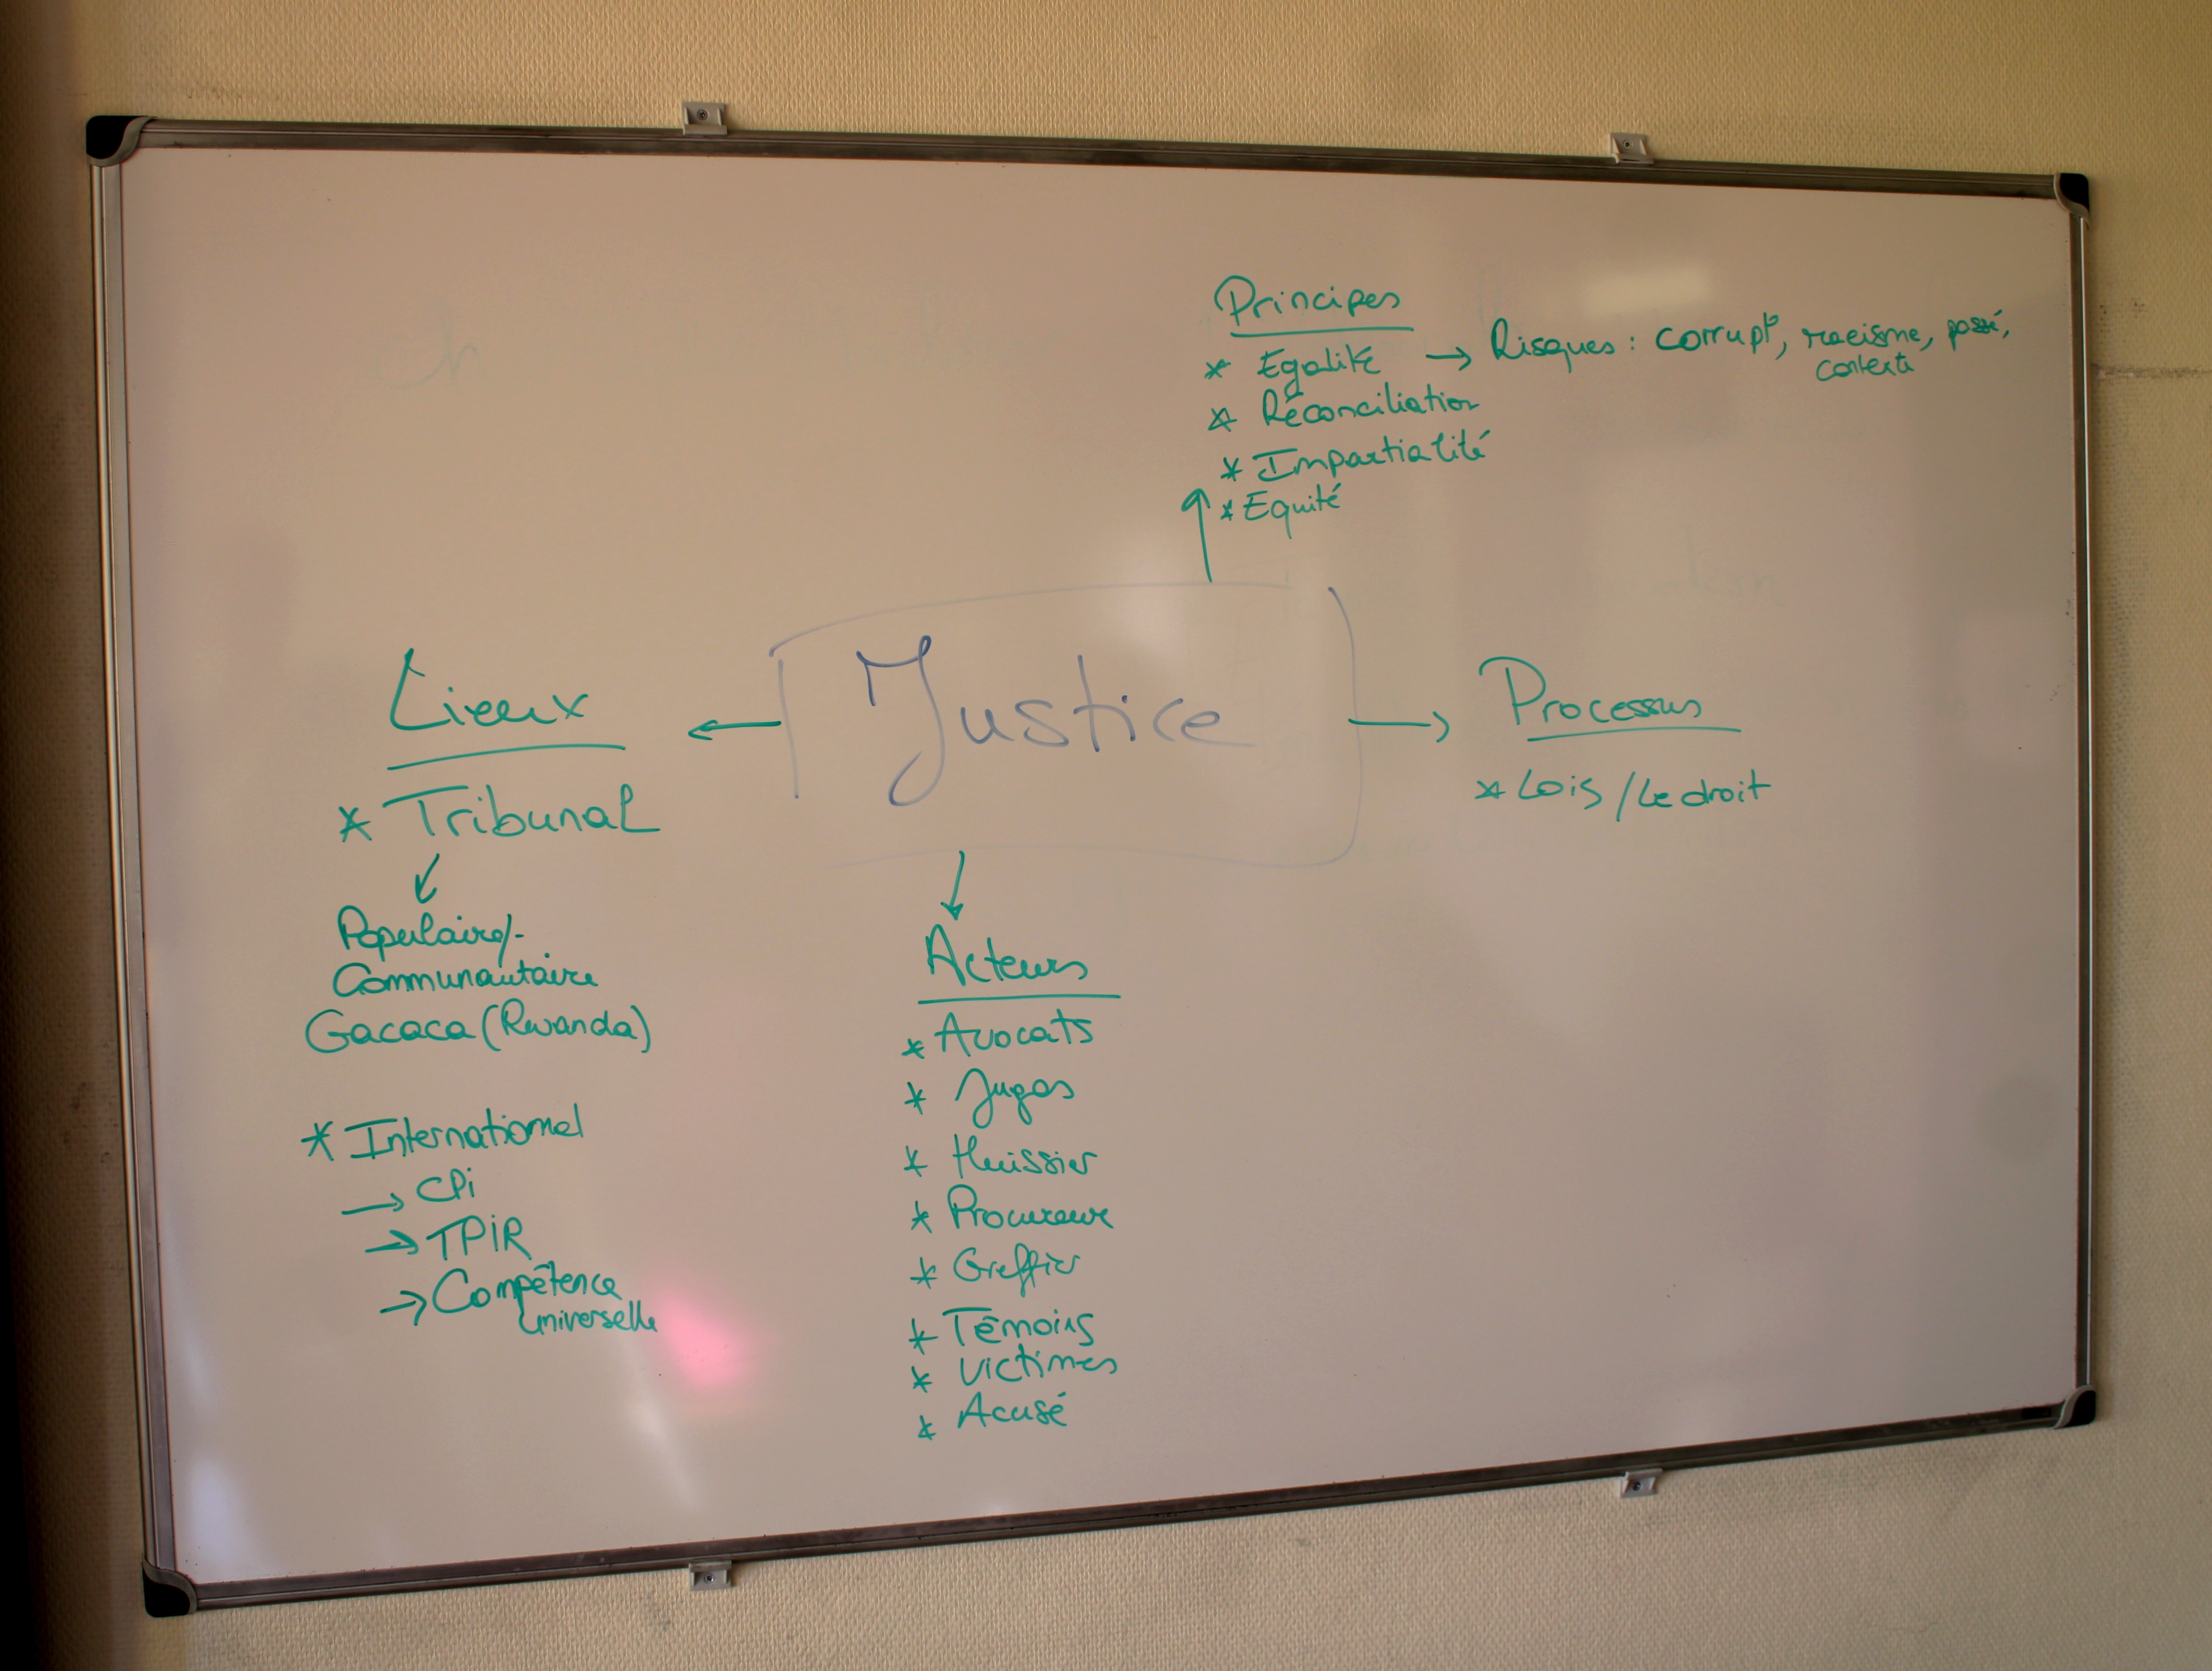 Principes
* Egalité → Risques : corrupt°, racisme, passé,
contexte
* Réconciliation
* Impartialité
* Equité
Justice
Lieux
* Tribunal
Populaire/-
Communautaire
Gacaca (Rwanda)
* International
→ CPi
→ TPiR
→ Compétence
universelle
Acteurs
* Avocats
* Juges
* Huissier
* Procureur
* Greffier
* Témoins
* Victimes
* Acusé
Processus
* Lois / Le droit